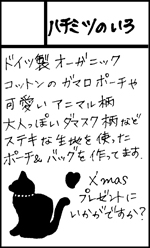 ハチミツのいろ
ドイツ製 オーガニック
コットンの ガマロポーチや
可愛い アニマル柄
大人っぽい ダマスク柄など
ステキな生地を使った
ポーチ& バッグを作ってます。
X'mas
プレゼントに
いかがですか？